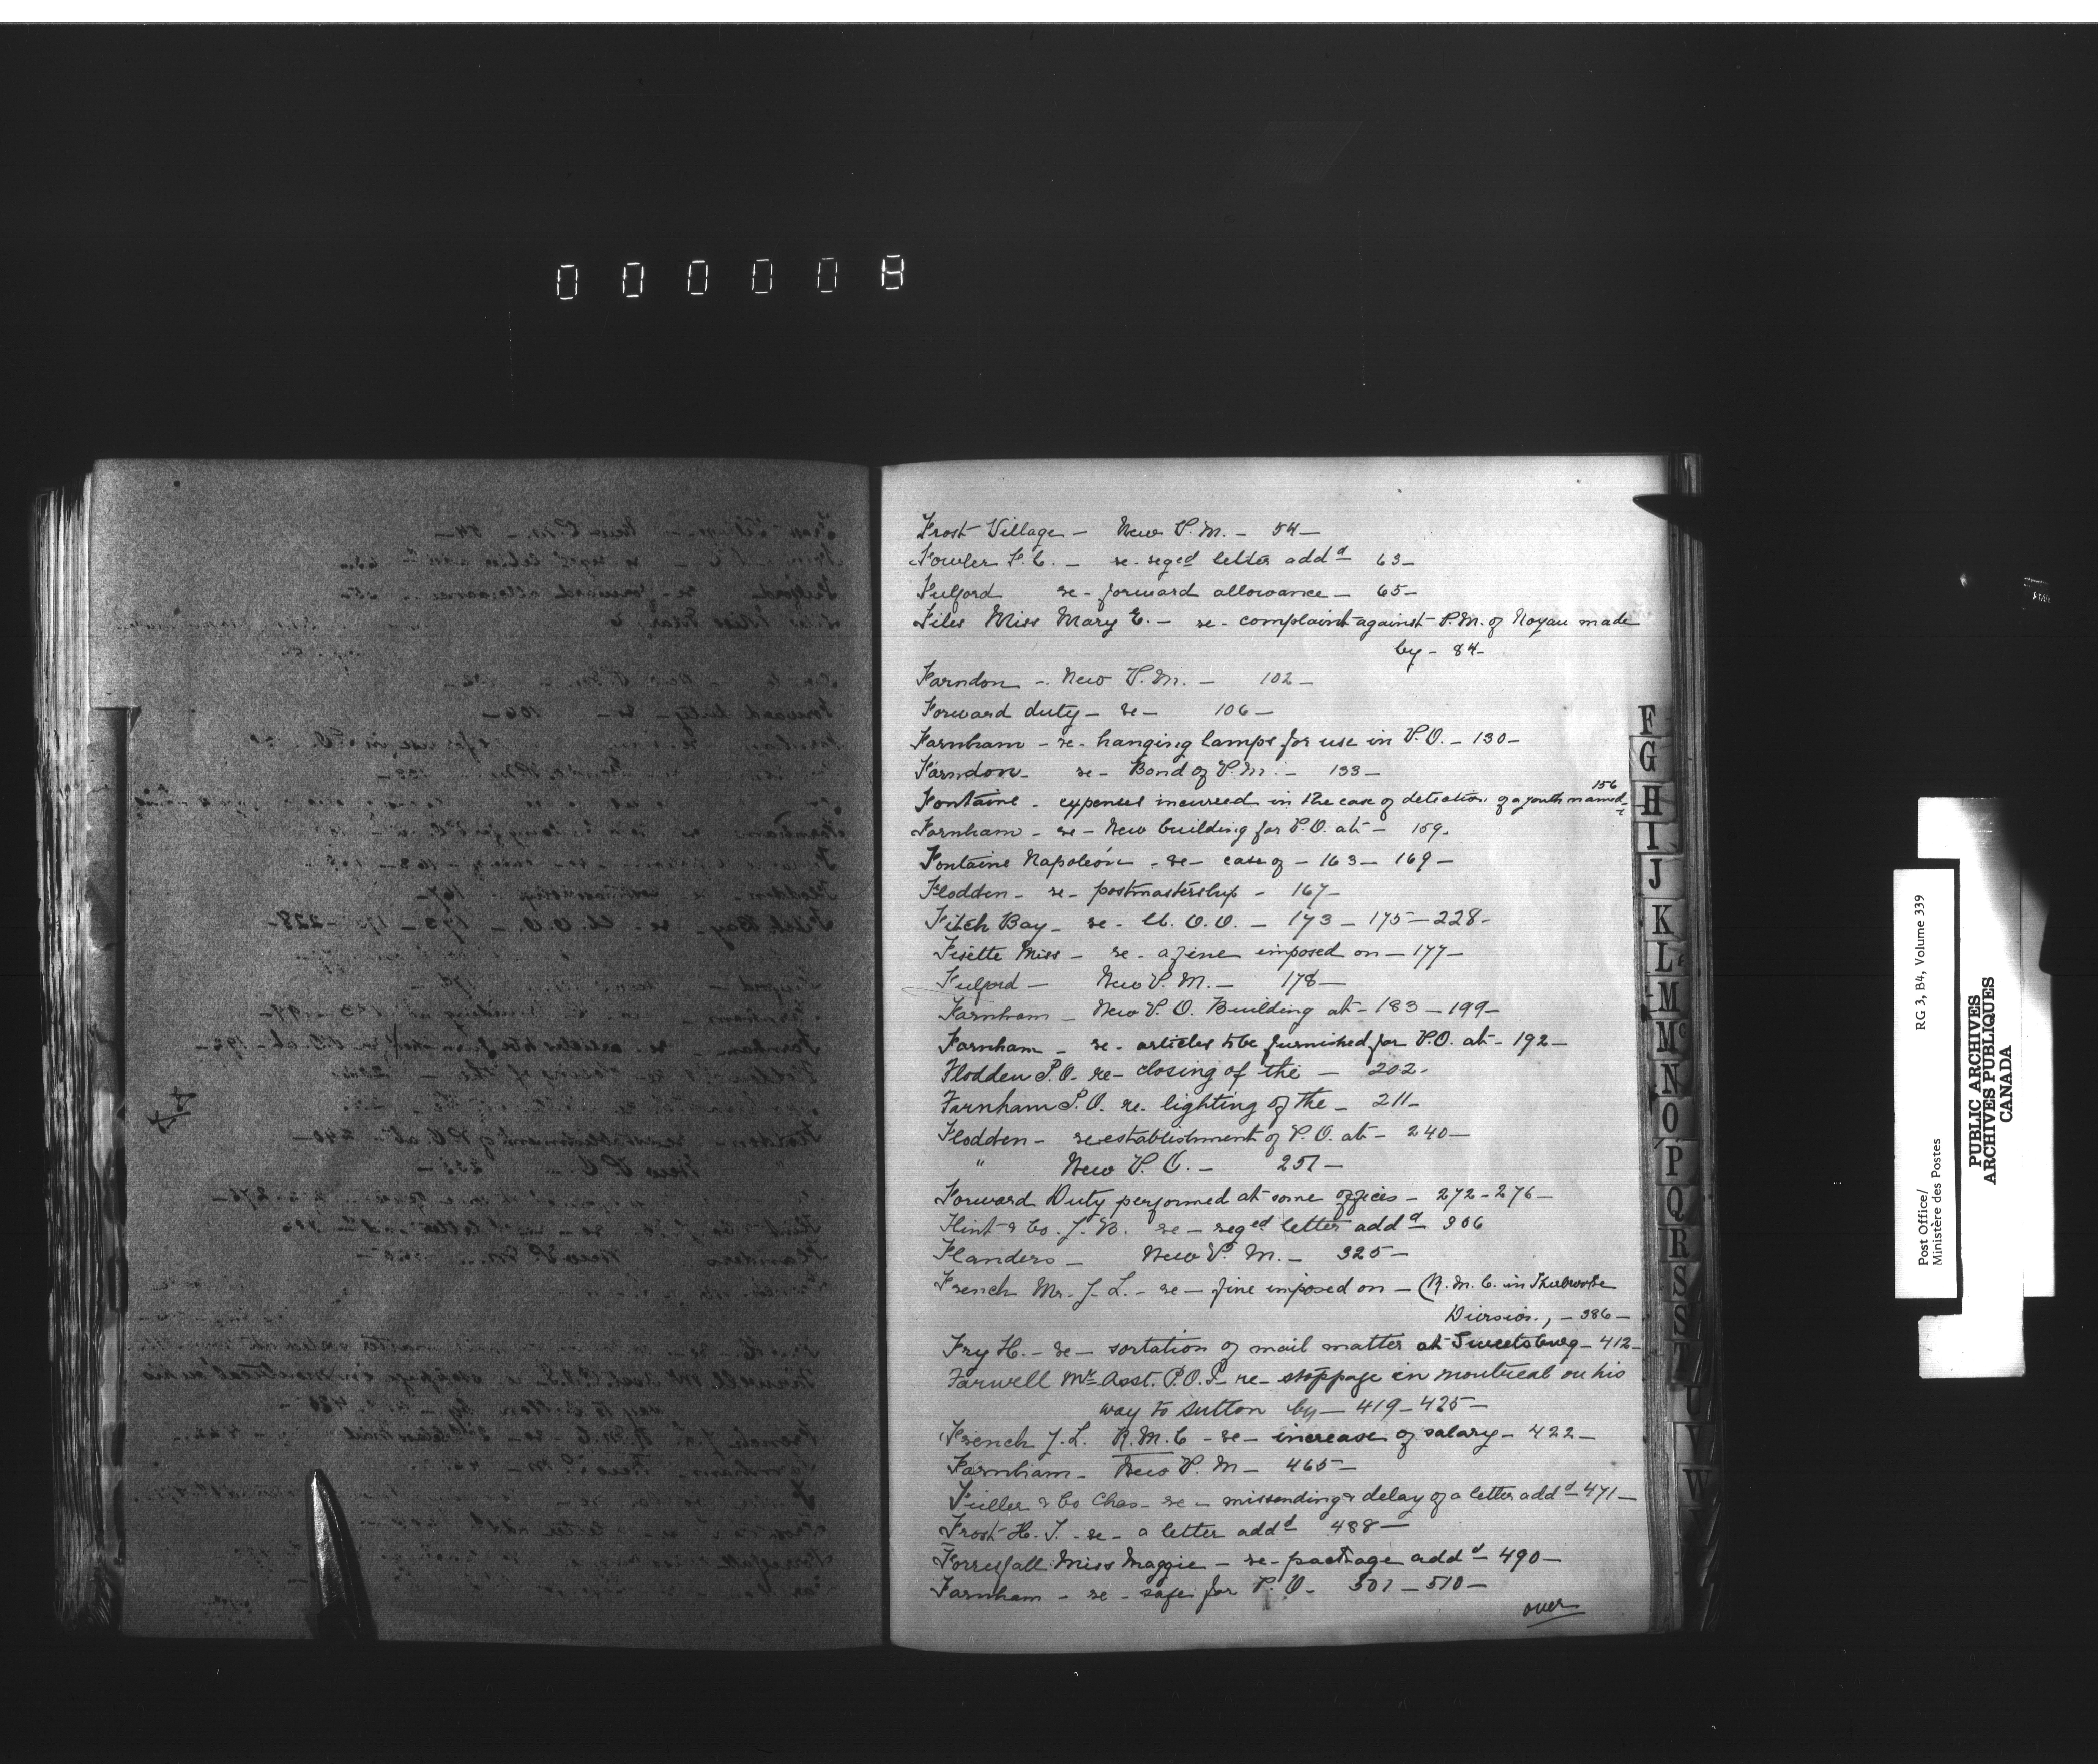 000008
Frost Village - New P.M. - 54 -
Fowler F.C. - re - reged letter addd 63 -
Fulford re - forward allowance - 65 -
Files Miss Mary E. - re - complaint against P.M. of Noyan made
by - 84 -
Farndon - New P.M. - 102 -
Forward duty - re - 106 -
Farnham - re - hanging lamps for use in P.O. - 130 -
Farndon - re - Bond of P.M. - 133 -
Fontaine - expenses incurred in the case of detection of a youth named - 156
Farnham - re - New building for P.O. at - 159 -
Fontaine Napoléon - re - case of - 163 - 169 -
Flodden - re - postmastership - 167 -
Fitch Bay - re - M.O.O. - 173 - 175 - 228 -
Fisette Miss - re - a fine imposed on - 177 -
Fulford - New P.M. - 178 -
Farnham - New P.O. Building at - 183 - 199 -
Farnham - re - articles to be furnished for P.O. at - 192 -
Flodden P.O. re - closing of the - 202 -
Farnham P.O. re. lighting of the - 211 -
Flodden - reestablishment of P.O. at - 240 -
" New P.O. - 257 -
Forward Duty performed at some offices - 272 - 276 -
Flint & Co. J.B. re - reged letter addd 306
Flanders - New P.M. - 325 -
French Mr. J.L. - re - fine imposed on - (R.M.C. in Sherbrooke
Division, - 386 -
Fry H. - re - sortation of mail matter at Sweetsburg - 412 -
Farwell Mr Asst. P.O.I. re - stoppage in Montreal on his
way to Sutton by - 419 - 425 -
French J.L. R.M.C - re - increase of salary - 422 -
Farnham - New P.M - 465 -
Fuller & Co Chas - re - missending & delay of a letter addd 471 -
Frost H.T. - re - a letter addd 488 -
Forresfall Miss Maggie - re - package addd 490 -
Farnham - re - safe for P.O. 501 - 510 -
over
F
G
H
I
J
K
L
M
Mc
N
O
P
Q
R
S
S
T
U
V
W
Post Office/ RG 3, B4, Volume 339
Ministère des Postes
PUBLIC ARCHIVES
ARCHIVES PUBLIQUES
CANADA